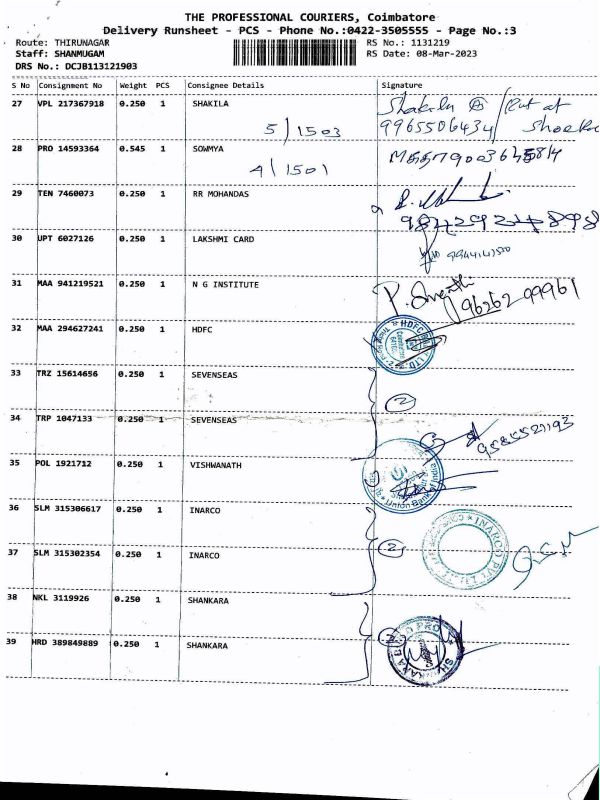 THE PROFESSIONAL COURIERS, Coimbatore
Delivery Runsheet - PCS - Phone No.:0422-3505555 - Page No.:3
Route: THIRUNAGAR RS No.: 1131219
Staff: SHANMUGAM RS Date: 08-Mar-2023
DRS No.: DCJB113121903
S No Consignment No Weight PCS Consignee Details Signature
27 VPL 217367918 0.250 1 SHAKILA Shakila
5/1503 9965506434/
28 PRO 14593364 0.545 1 SOWMYA
4/1501
29 TEN 7460073 0.250 1 RR MOHANDAS
30 UPT 6027126 0.250 1 LAKSHMI CARD
31 MAA 941219521 0.250 1 N G INSTITUTE
96262 99961
32 MAA 294627241 0.250 1 HDFC
33 TRZ 15614656 0.250 1 SEVENSEAS
2
34 TRP 1047133 0.250 1 SEVENSEAS
35 POL 1921712 0.250 1 VISHWANATH
Union Bank of India
36 SLM 315306617 0.250 1 INARCO
INARCO PVT. LTD.
37 SLM 315302354 0.250 1 INARCO
2
38 NKL 3119926 0.250 1 SHANKARA
39 HRD 389849889 0.250 1 SHANKARA
2